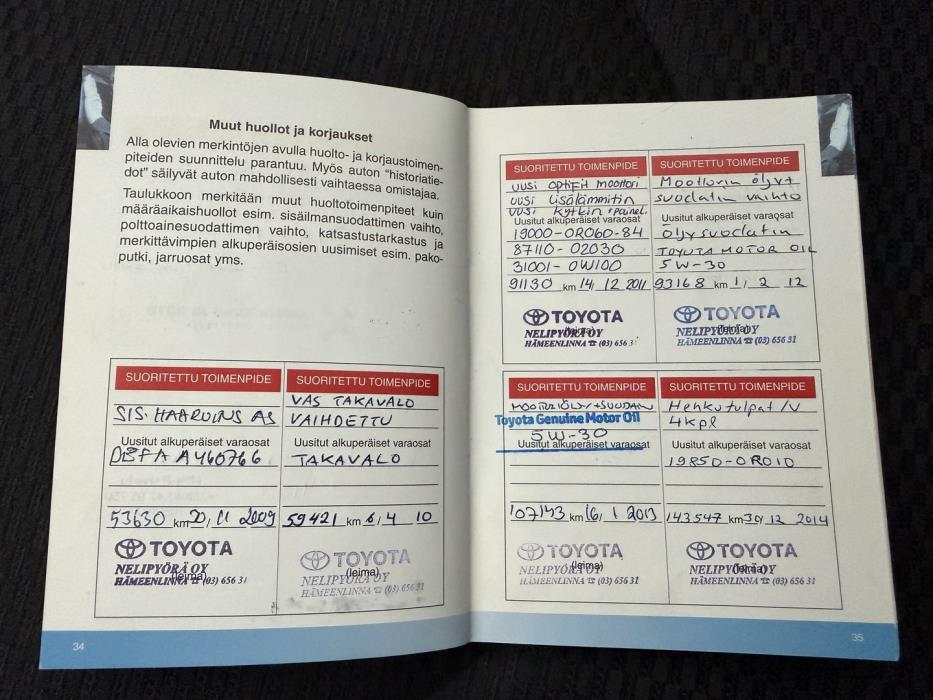 Muut huollot ja korjaukset
Alla olevien merkintöjen avulla huolto- ja korjaustoimen-
piteiden suunnittelu parantuu. Myös auton "historiatie-
dot" säilyvät auton mahdollisesti vaihtaessa omistajaa.
Taulukkoon merkitään muut huoltotoimenpiteet kuin
määräaikaishuollot esim. sisäilmansuodattimen vaihto,
polttoainesuodattimen vaihto, katsastustarkastus ja
merkittävimpien alkuperäisosien uusimiset esim. pako-
putki, jarruosat yms.
SUORITETTU TOIMENPIDE
SIS. HAARUINS AS
Uusitut alkuperäiset varaosat
A460766
53630 km 20/11 2009
TOYOTA
NELIPYÖRÄ OY
(leima)
HÄMEENLINNA ☎ (03) 656 31
SUORITETTU TOIMENPIDE
VAS TAKAVALO
VAIHDETTU
Uusitut alkuperäiset varaosat
TAKAVALO
59421 km 6/4 10
TOYOTA
(leima)
NELIPYÖRÄ OY
HÄMEENLINNA ☎ (03) 656 31
34
SUORITETTU TOIMENPIDE
uusi optifit moottori
uusi lisälämmitin
uusi kytkin + painel.
Uusitut alkuperäiset varaosat
19000-0R060-84
87110-02030
31001-0W100
91130 km 14/12 2011
TOYOTA
(leima)
NELIPYÖRÄ OY
HÄMEENLINNA ☎ (03) 656 3
SUORITETTU TOIMENPIDE
Moottorin öljyt
suodatin vaihto
Uusitut alkuperäiset varaosat
öljysuodatin
TOYOTA MOTOR OIL
5W-30
93168 km 1/2 12
TOYOTA
(leima)
NELIPYÖRÄ OY
HÄMEENLINNA ☎ (03) 656 31
SUORITETTU TOIMENPIDE
Toyota Genuine Motor Oil
5W-30
Uusitut alkuperäiset varaosat
107143 km 16/1 2013
TOYOTA
(leima)
NELIPYÖRÄ OY
HÄMEENLINNA ☎ (03) 656 31
SUORITETTU TOIMENPIDE
Hehkutulpat /V
4kpl
Uusitut alkuperäiset varaosat
19850-0R010
143547 km 30/12 2014
TOYOTA
(leima)
NELIPYÖRÄ OY
HÄMEENLINNA ☎ (03) 656 31
35